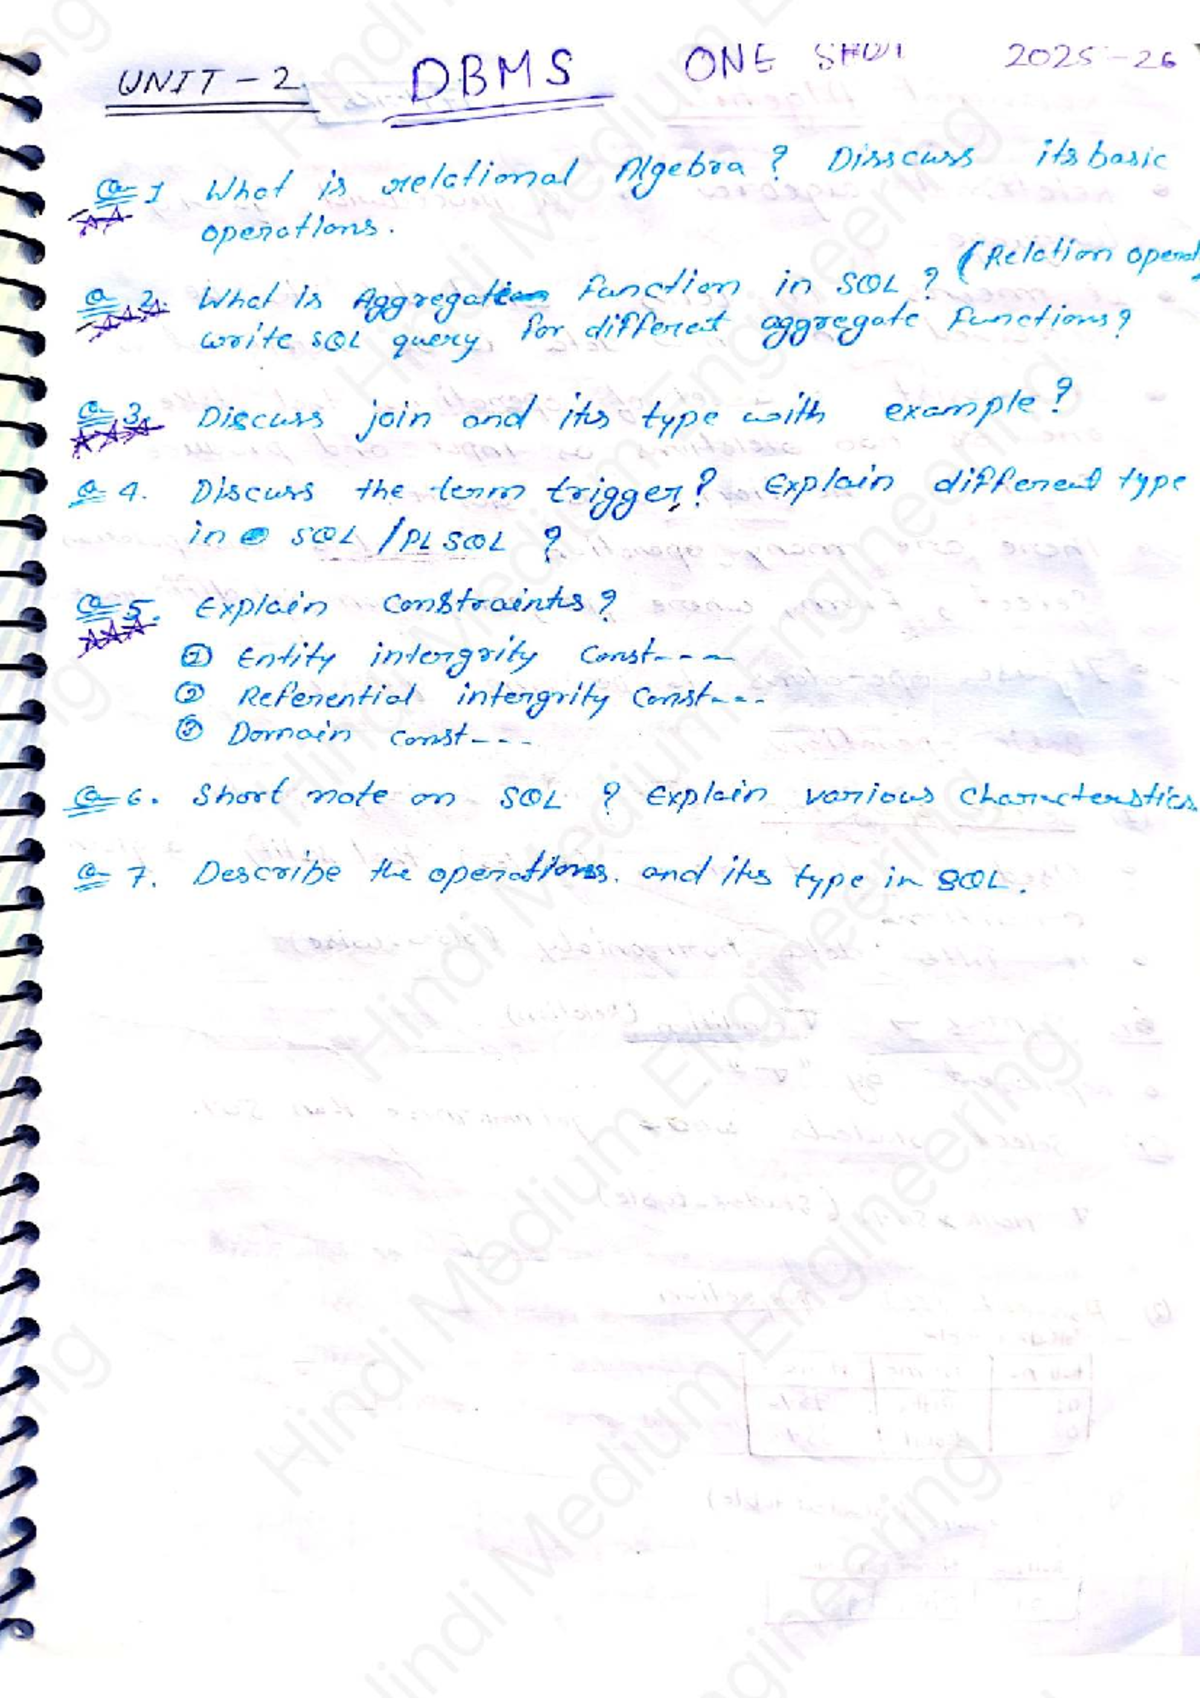 UNIT - 2. DBMS ONE SHOT 2025-26
Q 1 What is relational Algebra? Disscuss its basic
operations.
(Relation operat
Q 2. What is Aggregate function in SQL?
write SQL query for different aggregate functions?
Q 3. Discuss join and its type with example?
Q 4. Discuss the term trigger? Explain different type
in SQL /PLSQL ?
Q 5. Explain Constraints?
① Entity intergrity Const----
② Referential intergrity Const---.
③ Domain const---.
Q 6. Short note on SQL ? Explain various characteristics.
Q 7. Describe the operations. and its type in SQL.
Hindi Medium Engineering